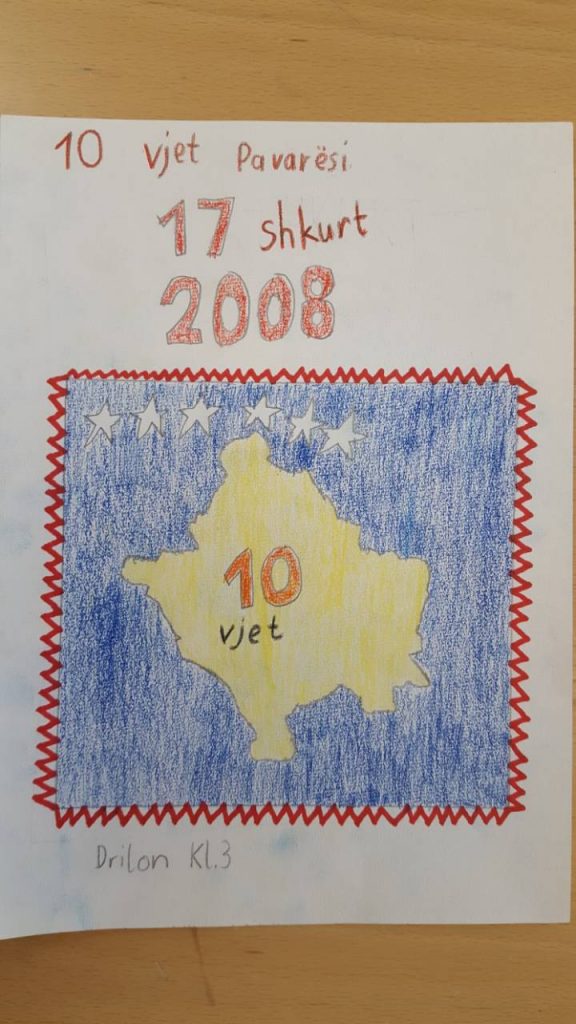 10 vjet Pavarësi
17 shkurt
2008
10
vjet
Drilon Kl.3